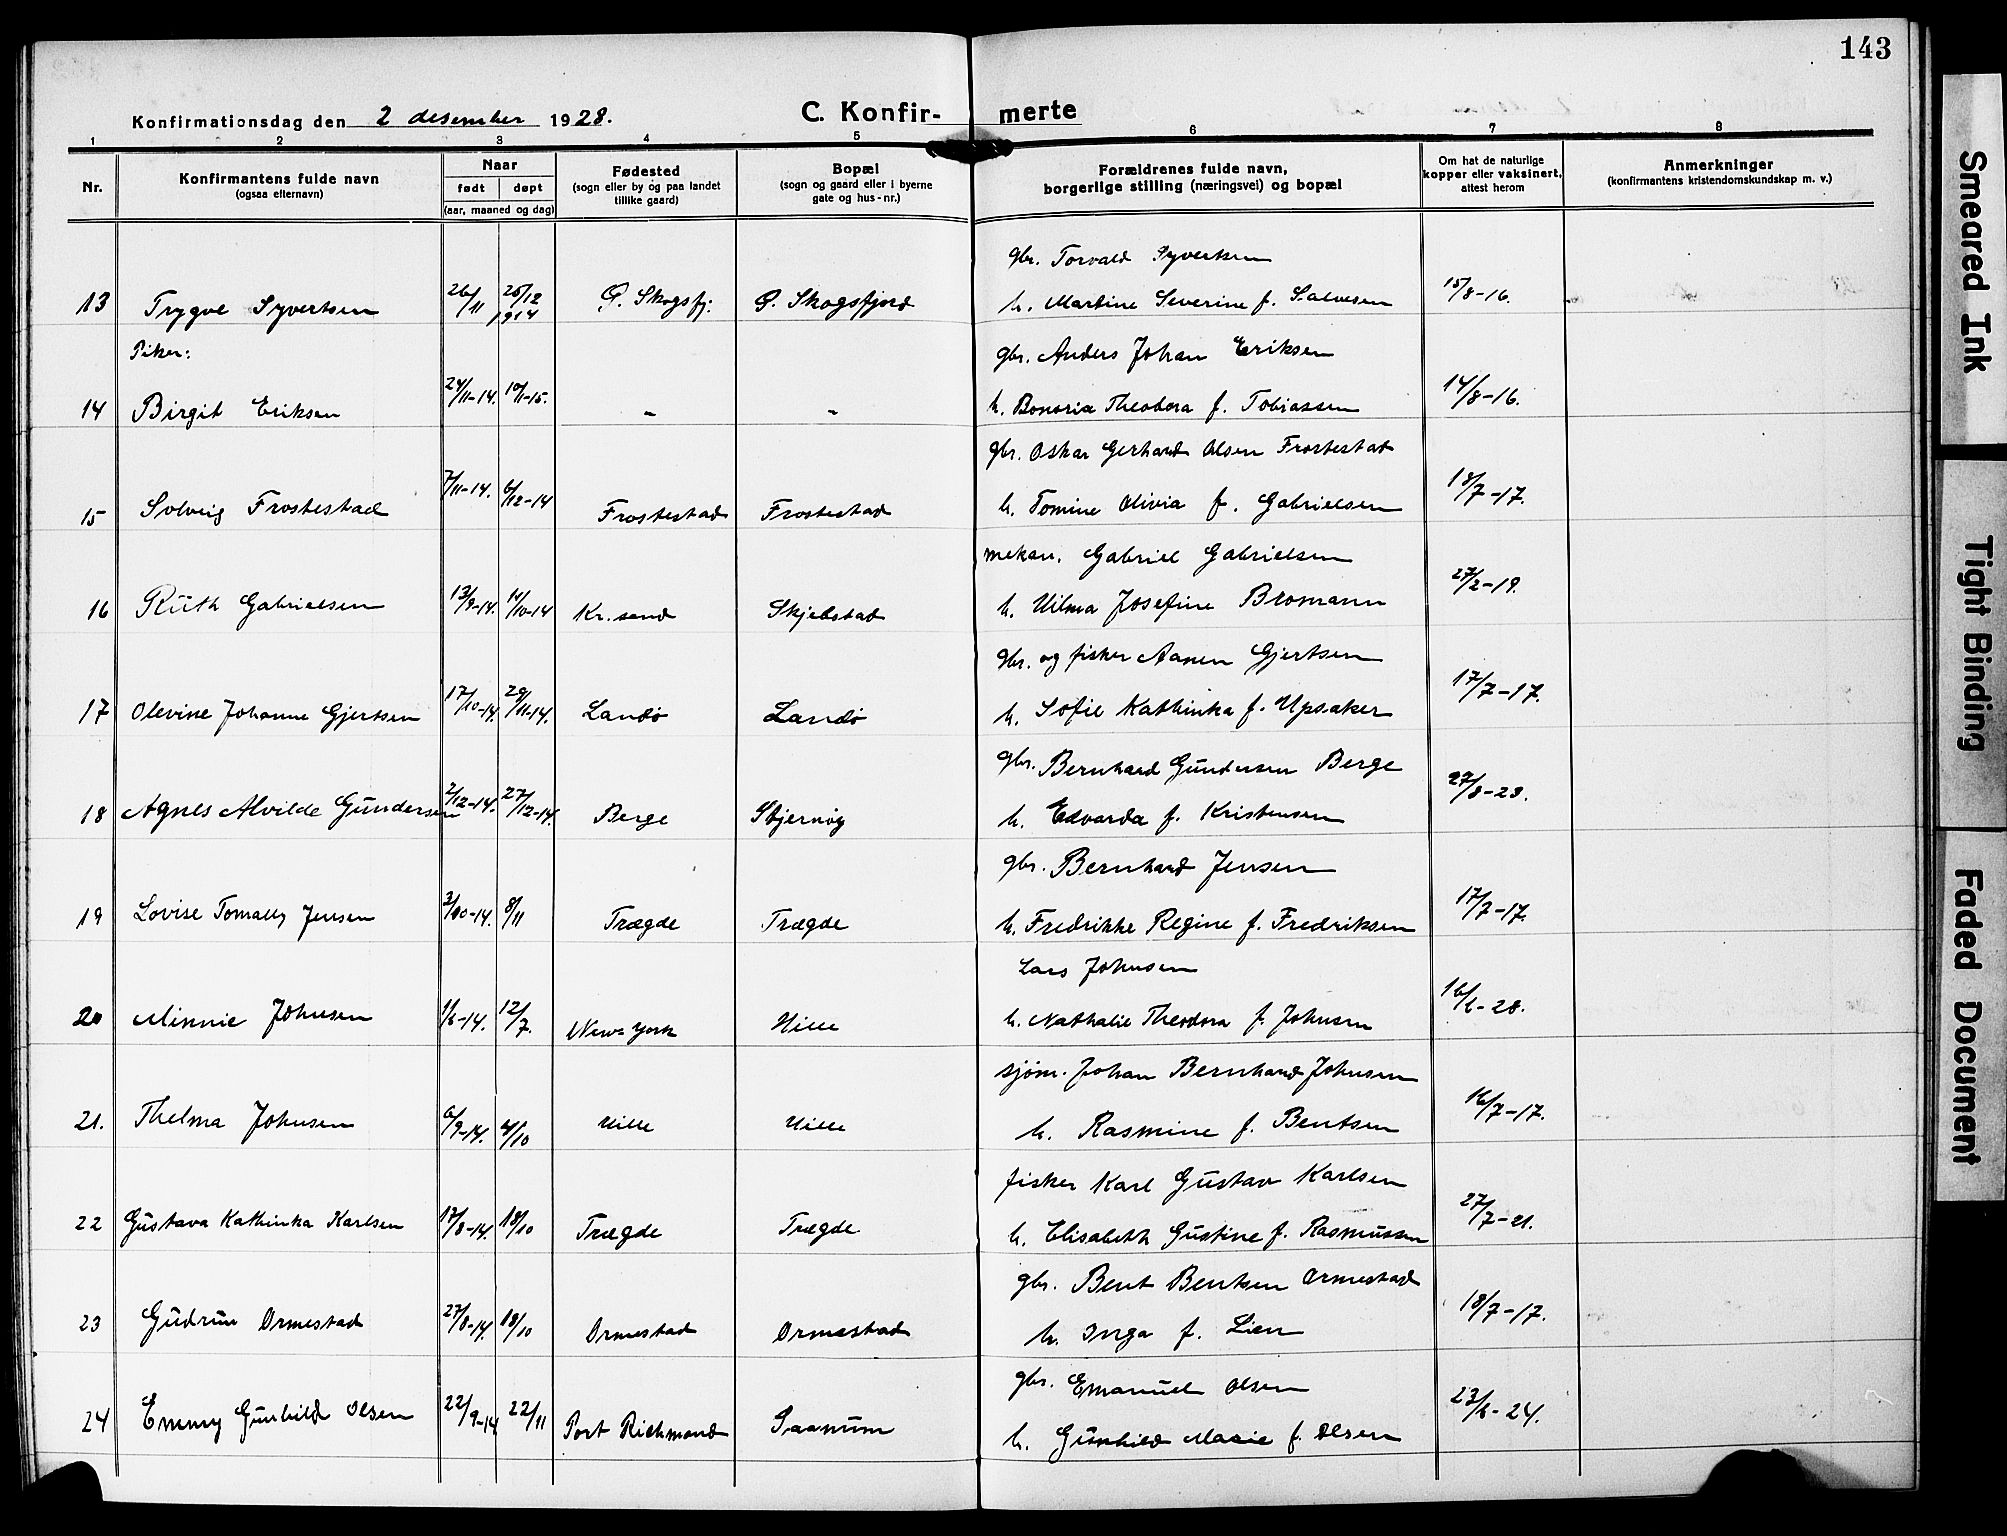 143
Konfirmationsdag den 2 desember 1928.
C. Konfir-merte
1 2 3 4 5 6 7 8
Nr.
Konfirmantens fulde navn
(ogsaa efternavn)
Naar
født døpt
(aar, maaned og dag)
Fødested
(sogn eller by og paa landet
tillike gaard)
Bopæl
(sogn og gaard eller i byerne
gate og hus-nr.)
Forældrenes fulde navn,
borgerlige stilling (næringsvei) og bopæl
Om hat de naturlige
kopper eller vaksinert,
attest herom
Anmerkninger
(konfirmantens kristendomskundskap m. v.)
gbr. Torvald Syvertsen
13 Trygve Syvertsen 26/11 26/12 1914 Ø. Skogsfj. Ø. Skogsfjord h. Martine Severine f. Salvesen 15/8-16.
Piker:
gbr. Anders Johan Eriksen
14 Birgit Eriksen 24/11-14. 10/1-15. - - h. Bonoria Theodora f. Tobiassen 14/8-16.
gbr. Oskar Gerhard Olsen Frostestad
15 Solveig Frostestad 7/11-14. 6/12-14 Frostestad Frostestad h. Tomine Olivia f. Gabrielsen 18/7-17.
mekan. Gabriel Gabrielsen
16 Ruth Gabrielsen 13/9-14. 14/10-14 Kr.sand Skjebstad h. Vilma Josefine Bromann 27/2-19.
gbr. og fisker Aanen Gjertsen
17 Olevine Johanne Gjertsen 17/10-14 29/11-14. Landø Landø h. Sofie Kathinka f. Upsaker 17/7-17.
gbr. Bernhard Gundersen Berge
18 Agnes Alvilde Gundersen 2/12-14. 27/12-14. Berge Stjernøy h. Edvarda f. Kristensen 27/8-23.
gbr. Bernhard Jensen
19 Lovise Tomally Jensen 3/10-14. 8/11 Trægde Trægde h. Fredrikke Regine f. Fredriksen 17/7-17.
Lars Johnsen
20 Minnie Johnsen 1/6-14. 12/7. New-York Hille h. Nathalie Theodora f. Johnsen 16/6-28.
sjøm. Johan Bernhard Johnsen
21. Thelma Johnsen 6/9-14. 4/10 Hille Hille h. Rasmine f. Bentsen 16/7-17.
fisker Karl Gustav Karlsen
22 Gustava Kathinka Karlsen 17/8-14. 18/10 Trægde Trægde h. Elisabeth Gustine f. Rasmussen 27/7-21.
gbr. Bent Bentsen Ormestad
23 Gudrun Ormestad 27/8-14. 18/10 Ormestad Ormestad h. Inga f. Lien 18/7-17.
gbr. Emanuel Olsen
24 Emmy Gunhild Olsen 22/9-14 22/11 Port Richmond Saanum h. Gunhild Marie f. Olsen 23/6-24.
Smeared Ink
Tight Binding
Faded Document